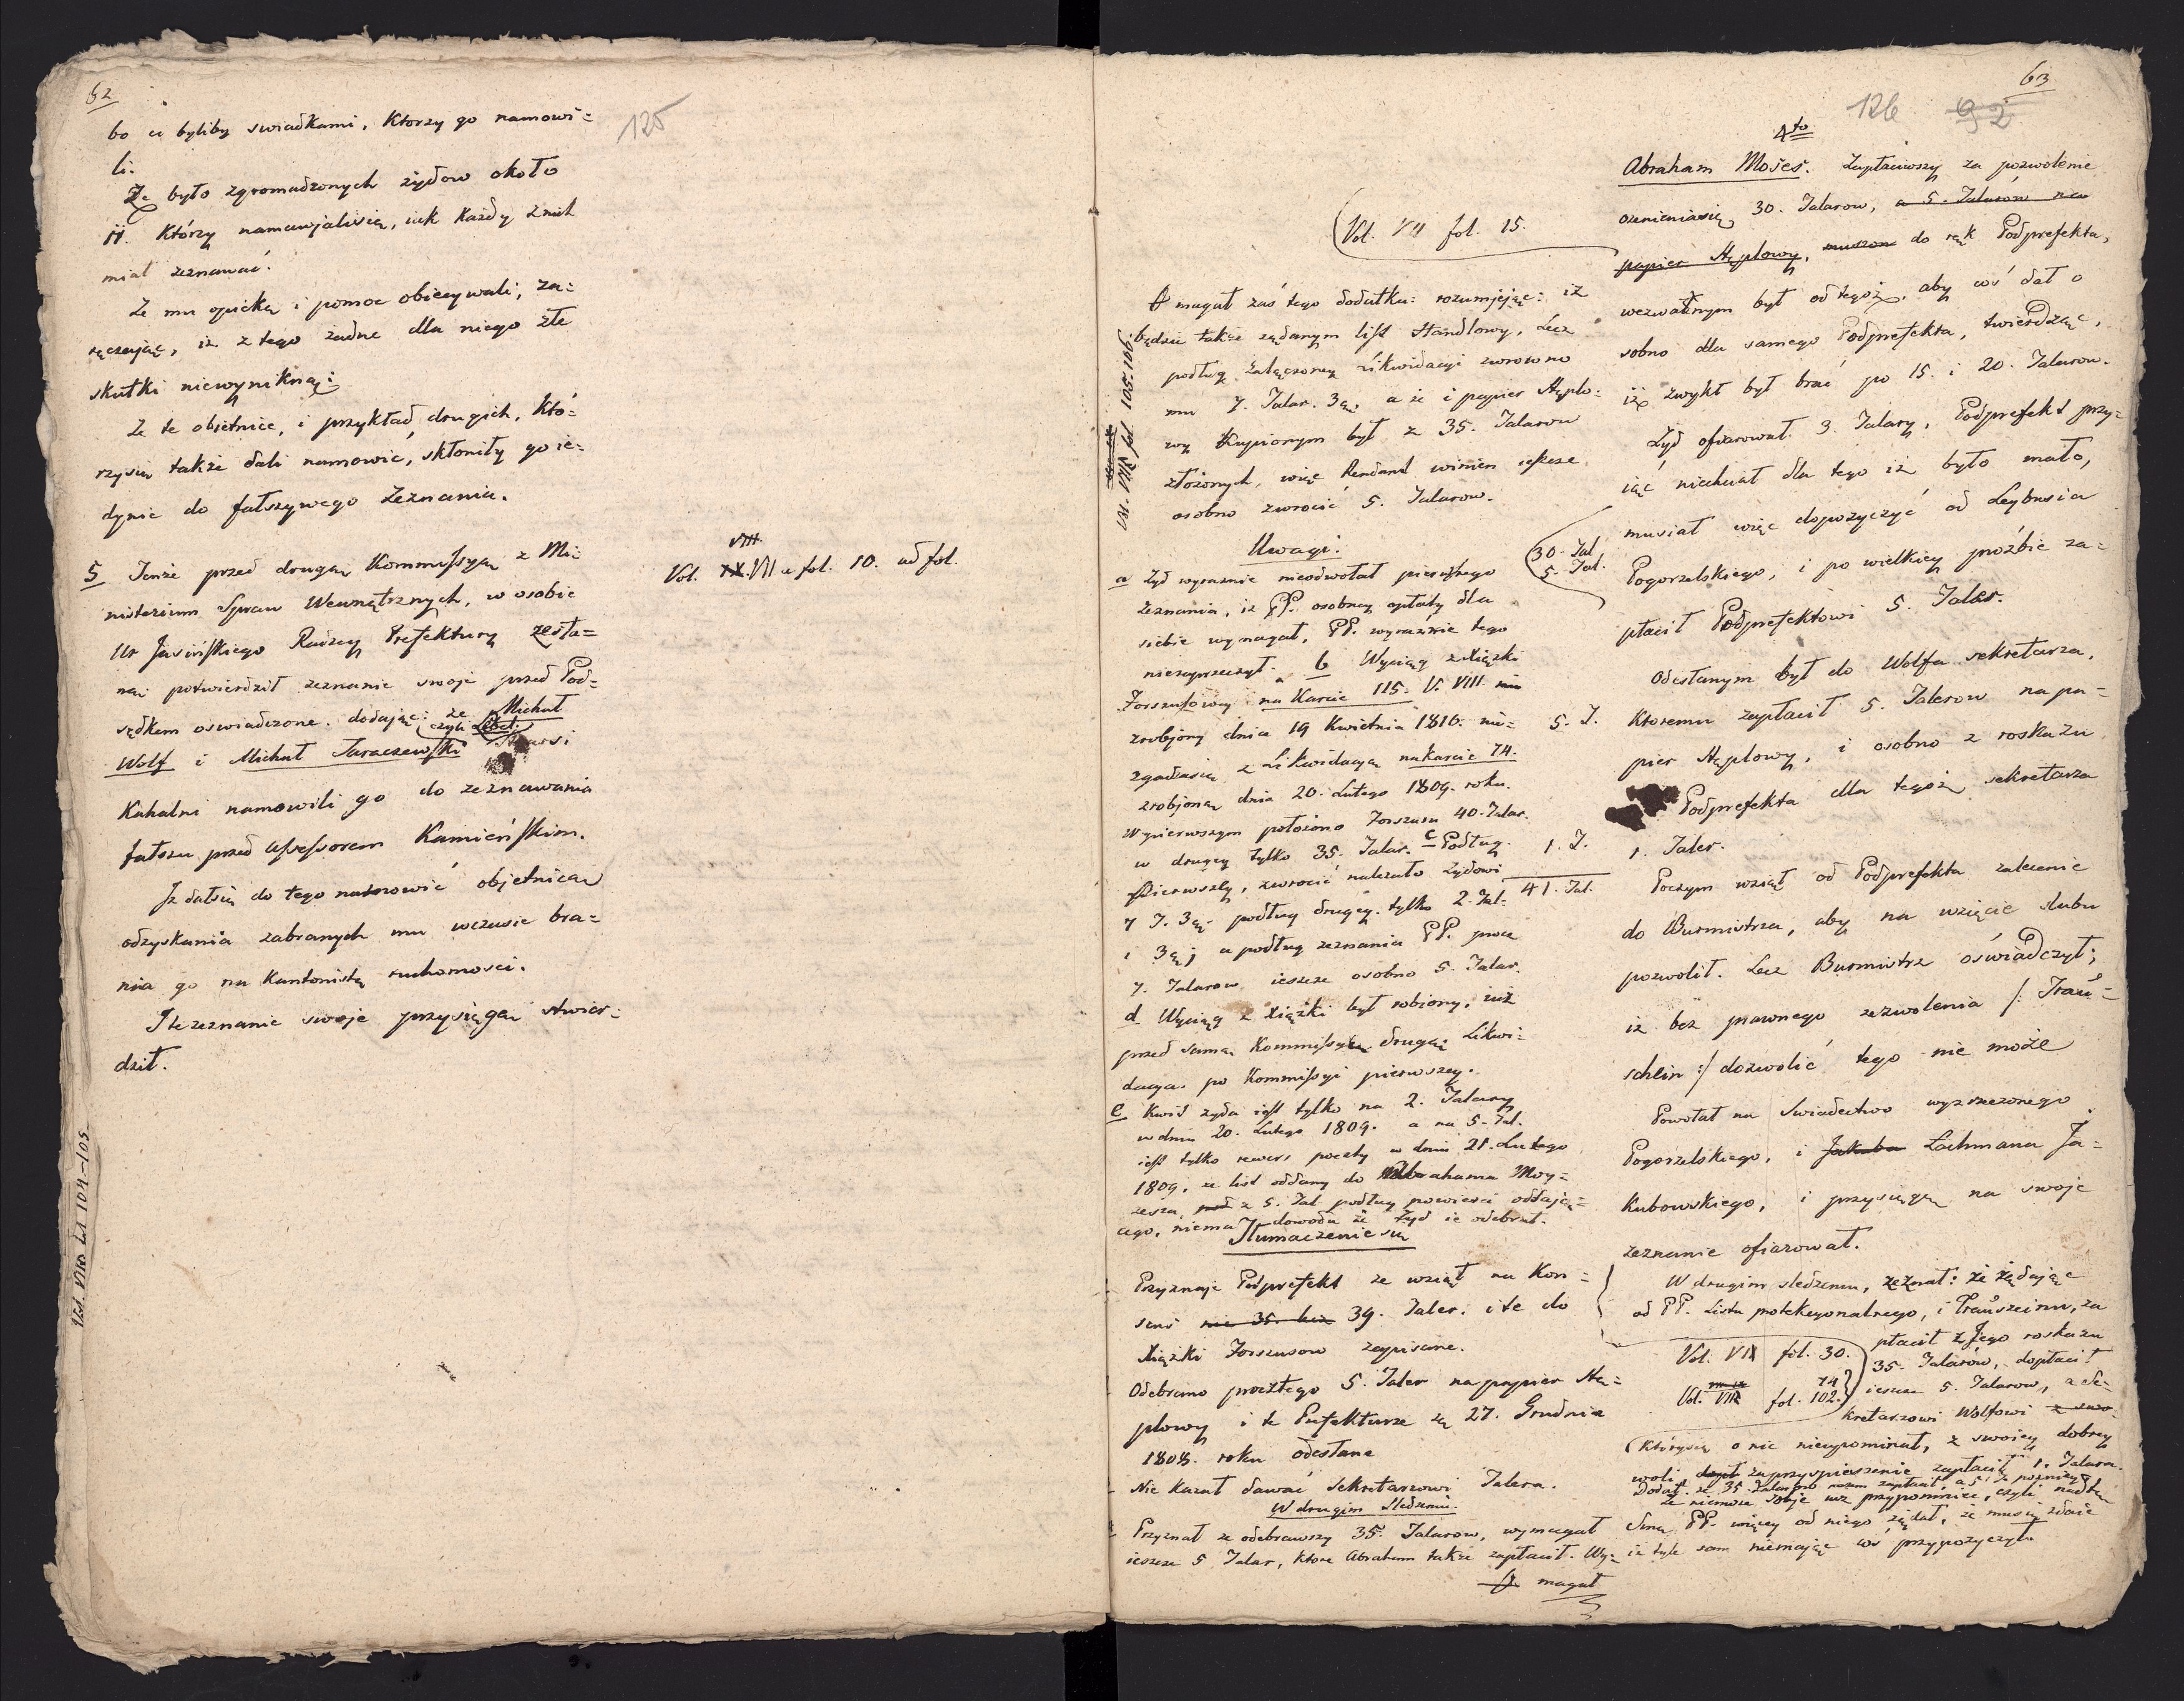 62
125
bo ci byliby swiadkami, Którzy go namowi=
li.
Że było zgromadzonych żydow około
11. Którzy namawjalisię, iak Każdy z nich
miał zeznawać.
Że mu opiekę i pomoc obiecywali, za=
ręczając, iż z tego żadne dla niego złe
skutki niewynikną;
Że te obietnice, i przykład drugich, Któ=
rzysię także dali namowić, skłoniły go ie=
dynie do fałszywego Zeznania.
5 Tenże przed drugą Kommissyą z Mi=
nisterium Spraw Wewnętrznych, w osobie
Ur Jasińskiego Radzcy Prefektury zesła=
ną potwierdził zeznanie swoje przed Pod=
sędkem oswiadczone. dodając: że Michał
Wolf i Michał Taraczewski
Kahalni namowili go do zeznawania
fałszu przed Assessorem Kamieńskim.
Iż dałsię do tego namowić objetnicą
odzyskania zabranych mu wczasie bra=
nia go na Kantonistę ruchomosci.
I te zeznanie swoje przysięgą stwier=
dził.
VIII.
Vol. IX. VII a fol. 10. ad fol.
Vol. VIII Lit 104-105
63
126 92
Vol. VII fol. 15.
O magał zaś tego dodatku: rozumiejąc: iż
będzie także żądanym list Handlowy, Lecz
podług załączoney Likwidacyi zwrocono
mu 7. Talar. 3 a że i papier stęplo=
wy Kupionym był z 35. Talarow
złożonych, więc Rendant winien ieszcze
osobno zwrocić 5. Talarow.
Vol. VIII fol 105. 109.
Uwagi.
a Żyd wyraznie nieodwołał pierwszego
Zeznania, iż PP. osobney opłaty dla
siebie wymagał, PP. wyraznie tego
niezaprzeczył. b Wyciąg z Xiążki
Forszusowy na Karcie 115. V. VIII.
zrobjony dnia 19 Kwietnia 1810. nie=
zgadzasię z Likwidacyą na karcie 74.
zrobjoną dnia 20. Lutego 1809. roku.
W pierwszym położono Forszusu 40. Talar.
w drugey tylko 35. Talar. c Podług
Pierwszey, zwrocić należało Żydowi
7 T. 3 podług drugey. tylko 2. Tal.
i 3 a podług zeznania PP. procz
7. Talarow ieszcze osobno 5. Talar.
d Wyciąg z Xiążki był robiony, iuż
przed samą Kommissyą drugą Likwi=
dacya po Kommissyi pierwszey.
e Kwit żyda iest tylko na 2. Talary
w dniu 20. Lutego 1809. a na 5. Tal.
iest tylko rewers poczty w dniu 21. Lutego
1809. że list oddany do Abrahama Moy=
zesza, z 5. Tal podług powiesci oddają=
cego, niema dowodu że Żyd ie odebrał.
Tłumaczenie się
Przyznaje Podprefekt że wziął na Kon=
sens nie 35. lecz 39. Taler. i te do
Xiążki Forszusow zapisane.
Odebrano procztego 5. Taler na papier stę=
plowy i te Prefekturze 27. Grudnia
1808. roku odesłane
Nie kazał dawać Sekretarzowi Talera.
W drugim Sledzeniu.
Przyznał że odebrawszy 35. Talarow, wymagał
ieszcze 5 Talar, które Abraham także zapłacił. Wy=
magał
4to
Abraham Moses. Zapłaciwszy za pozwolenie
ozenieniasię 30. Talarow, a 5. Talarów na
papier stęplowy, do rąk Podprefekta,
wezwanym był od tegoż, aby coś dał o
sobno dla samego Podprefekta, twierdząc,
iż zwykł był brać po 15. i 20. Talarow.
Żyd ofiarował 3. Talary, Podprefekt przy=
iąć niechciał dla tego iż było mało,
musiał więc dopożyczyć od Leybusia
Pogorzelskiego, i po wielkiey prożbie za=
płacił Podprefektowi 5. Taler.
30. Tal
5. Tal.
Odesłanym był do Wolfa sekretarza,
5. T. Ktoremu zapłacił 5. Talerow na pa=
pier stęplowy, i osobno z roskazu
Podprefekta dla tegoż sekretarza
1. T. 1. Taler.
41. Tal.
Poczym wziął od Podprefekta zalecenie
do Burmistrza, aby na wzięcie slubu
pozwolił. Lecz Burmistrz oświadczył;
iż bez prawnego zezwolenia /: Trau=
schein :/ dozwolić tego nie może
Powołał na Swiadectwo wyzrzeczonego
Pogorzelskiego, i Jakuba Lachmana Ja=
kubowskiego, i przysięgą na swoje
zeznanie ofiarował.
W drugim sledzeniu, zeznał: że żądając
od PP. Listu protekcyonalnego, i Trauszeinu, za
płacił z Jego roskazu
35. Talarów, dopłacił
ieszcze 5. Talarow, a Se=
kretarzowi Wolfowi z swo=
Vol. VII fol. 30.
74
Vol. VIII fol. 102.
Którysię o nic nieupominał, z swoiey dobrey
woli zaprzyspieszenie zapłacił 1. Talara.
Dodał że 35. Talarow razem zapłacił a 5. pozniey
że niemoże sobje więc przypomnieć, czyli nadto
PP. więcey od niego żądał, że musię zdaie
iż tyle sam niemając coś przypożyczył